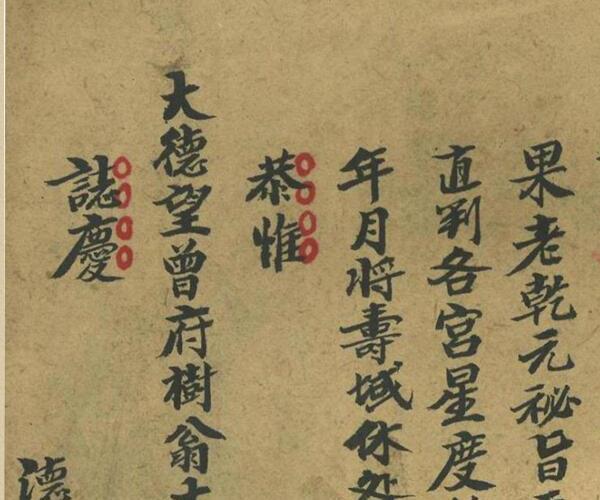 果老乾元秘旨
直判各宮星度
年月將壽域休处
恭惟
大德望曾府樹翁大
誌慶
德